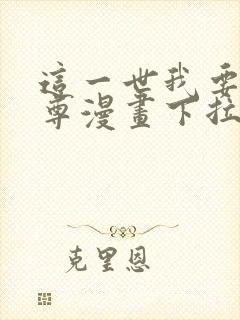 這一世我要
尊漫畫下拉
克里恩